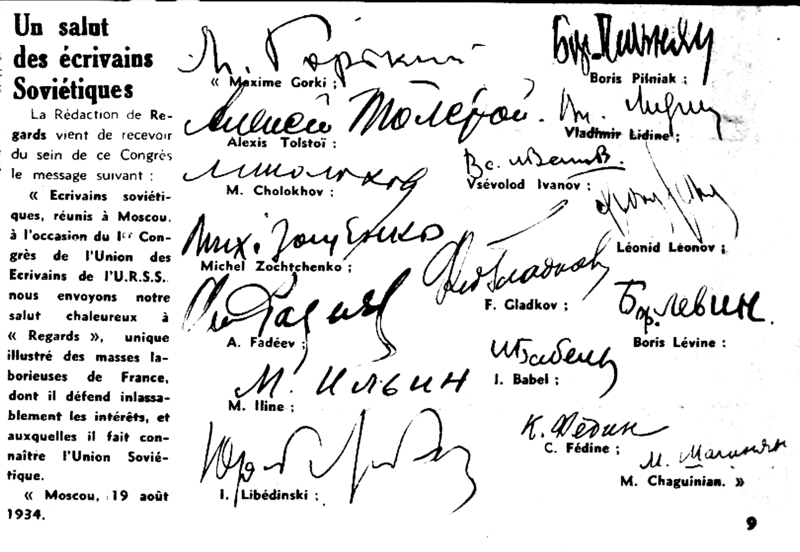 Un salut
des écrivains
Soviétiques
La Rédaction de Re-
gards vient de recevoir
du sein de ce Congrès
le message suivant :
« Ecrivains soviéti-
ques, réunis à Moscou,
à l'occasion du Iᵉʳ Con-
grès de l'Union des
Ecrivains de l'U.R.S.S.
nous envoyons notre
salut chaleureux à
« Regards », unique
illustré des masses la-
borieuses de France,
dont il défend inlassa-
blement les intérêts, et
auxquelles il fait con-
naître l'Union Sovié-
tique.
« Moscou, 19 août
1934.
М. Горький
« Maxime Gorki ;
Бор. Пильняк
Boris Pilniak ;
Алексей Толстой.
Alexis Tolstoï ;
Вл. Лидин
Vladimir Lidine ;
М. Шолохов
M. Cholokhov ;
Вс. Иванов.
Vsévolod Ivanov ;
Léonid Léonov ;
Мих. Зощенко
Michel Zochtchenko ;
Гладков
F. Gladkov ;
Фадеев
A. Fadéev ;
Бор. Левин.
Boris Lévine ;
М. Ильин
M. Iline ;
И. Бабель
I. Babel ;
Юрий
I. Libédinski ;
К. Федин
C. Fédine ;
М. Шагинян
M. Chaguinian. »
9